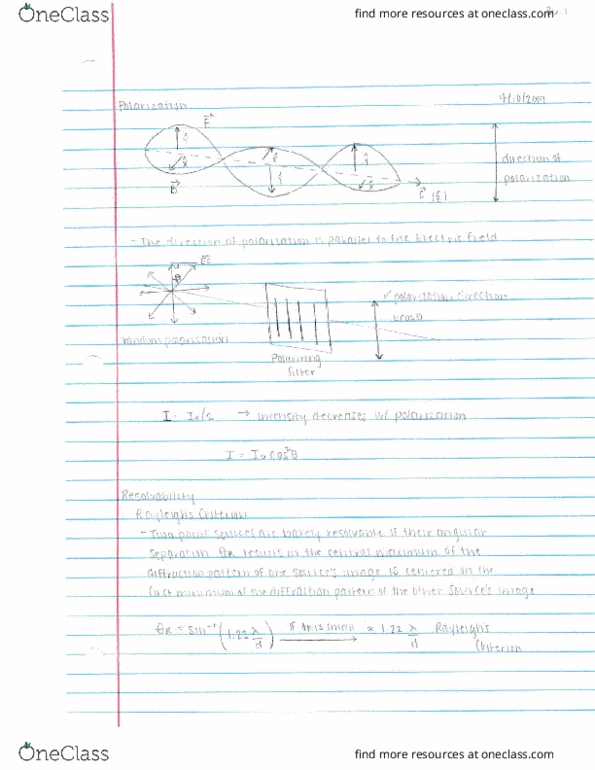 OneClass
find more resources at oneclass.com
Polarization
E
direction of
polarization
B
- The direction of polarization is parallel to the Electric Field
polarization direction
Ecosθ
random polarization
Polarizing
filter
I = I₀/2 → intensity decreases w/ polarization
I = I₀cos²θ
Resolvability
Rayleigh's Criterion
- Two point sources are barely resolvable if their angular
separation θR results in the central maximum of the
diffraction pattern of one source's image is centered on the
first minimum of the diffraction pattern of the other source's image
θR = sin⁻¹(1.22 λ/d) if θR is small → ≈ 1.22 λ/d Rayleigh's
Criterion
OneClass
find more resources at oneclass.com